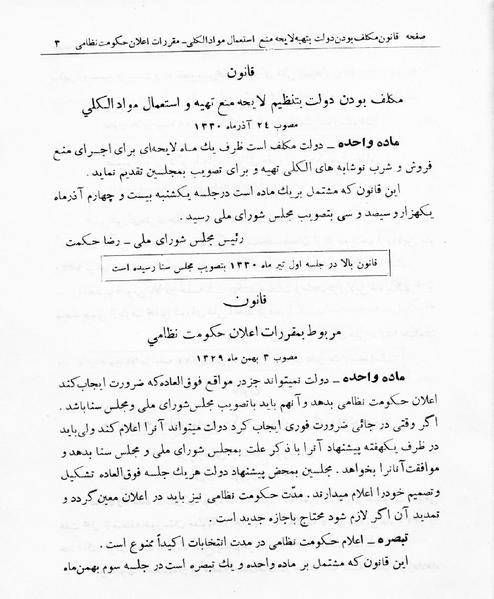 صفحه قانون مکلف بودن دولت بتهیه لایحه منع استعمال مواد الکلی ـ مقررات اعلان حکومت نظامی ۳
قانون
مکلف بودن دولت بتنظیم لایحه منع تهیه و استعمال مواد الکلي
مصوب ۲۴ آذرماه ۱۳۳۰
ماده واحده ـ دولت مکلف است ظرف یك ماه لایحه‌ای برای اجرای منع
فروش و شرب نوشابه های الکلی تهیه و برای تصویب بمجلسین تقدیم نماید .
این قانون که مشتمل بریك ماده است درجلسه یکشنبه بیست و چهارم آذرماه
یکهزار و سیصد و سی بتصویب مجلس شورای ملی رسید .
رئیس مجلس شورای ملی ـ رضا حکمت
قانون بالا در جلسه اول تیر ماه ۱۳۳۰ بتصویب مجلس سنا رسیده است
قانون
مربوط بمقررات اعلان حکومت نظامي
مصوب ۳ بهمن ماه ۱۳۲۹
ماده واحده ـ دولت نمیتواند جز در مواقع فوق‌العاده که ضرورت ایجاب کند
اعلان حکومت نظامی بدهد و آنهم باید با تصویب مجلس شورای ملی و مجلس سنا باشد .
اگر وقتی در جائی ضرورت فوری ایجاب کرد دولت میتواند آنرا اعلام کند ولی باید
در ظرف یکهفته پیشنهاد آنرا با ذکر علت بمجلس شورای ملی و مجلس سنا بدهد و
موافقت آنانرا بخواهد . مجلسین بمحض پیشنهاد دولت هریك جلسه فوق‌العاده تشکیل
و تصمیم خودرا اعلام میدارند . مدّت حکومت نظامی نیز باید در اعلان معین گردد و
تمدید آن اگر لازم شود محتاج باجازه جدید است .
تبصره ـ اعلام حکومت نظامی در مدت انتخابات اکیداً ممنوع است .
این قانون که مشتمل بر ماده واحده و یك تبصره است در جلسه سوم بهمن‌ماه